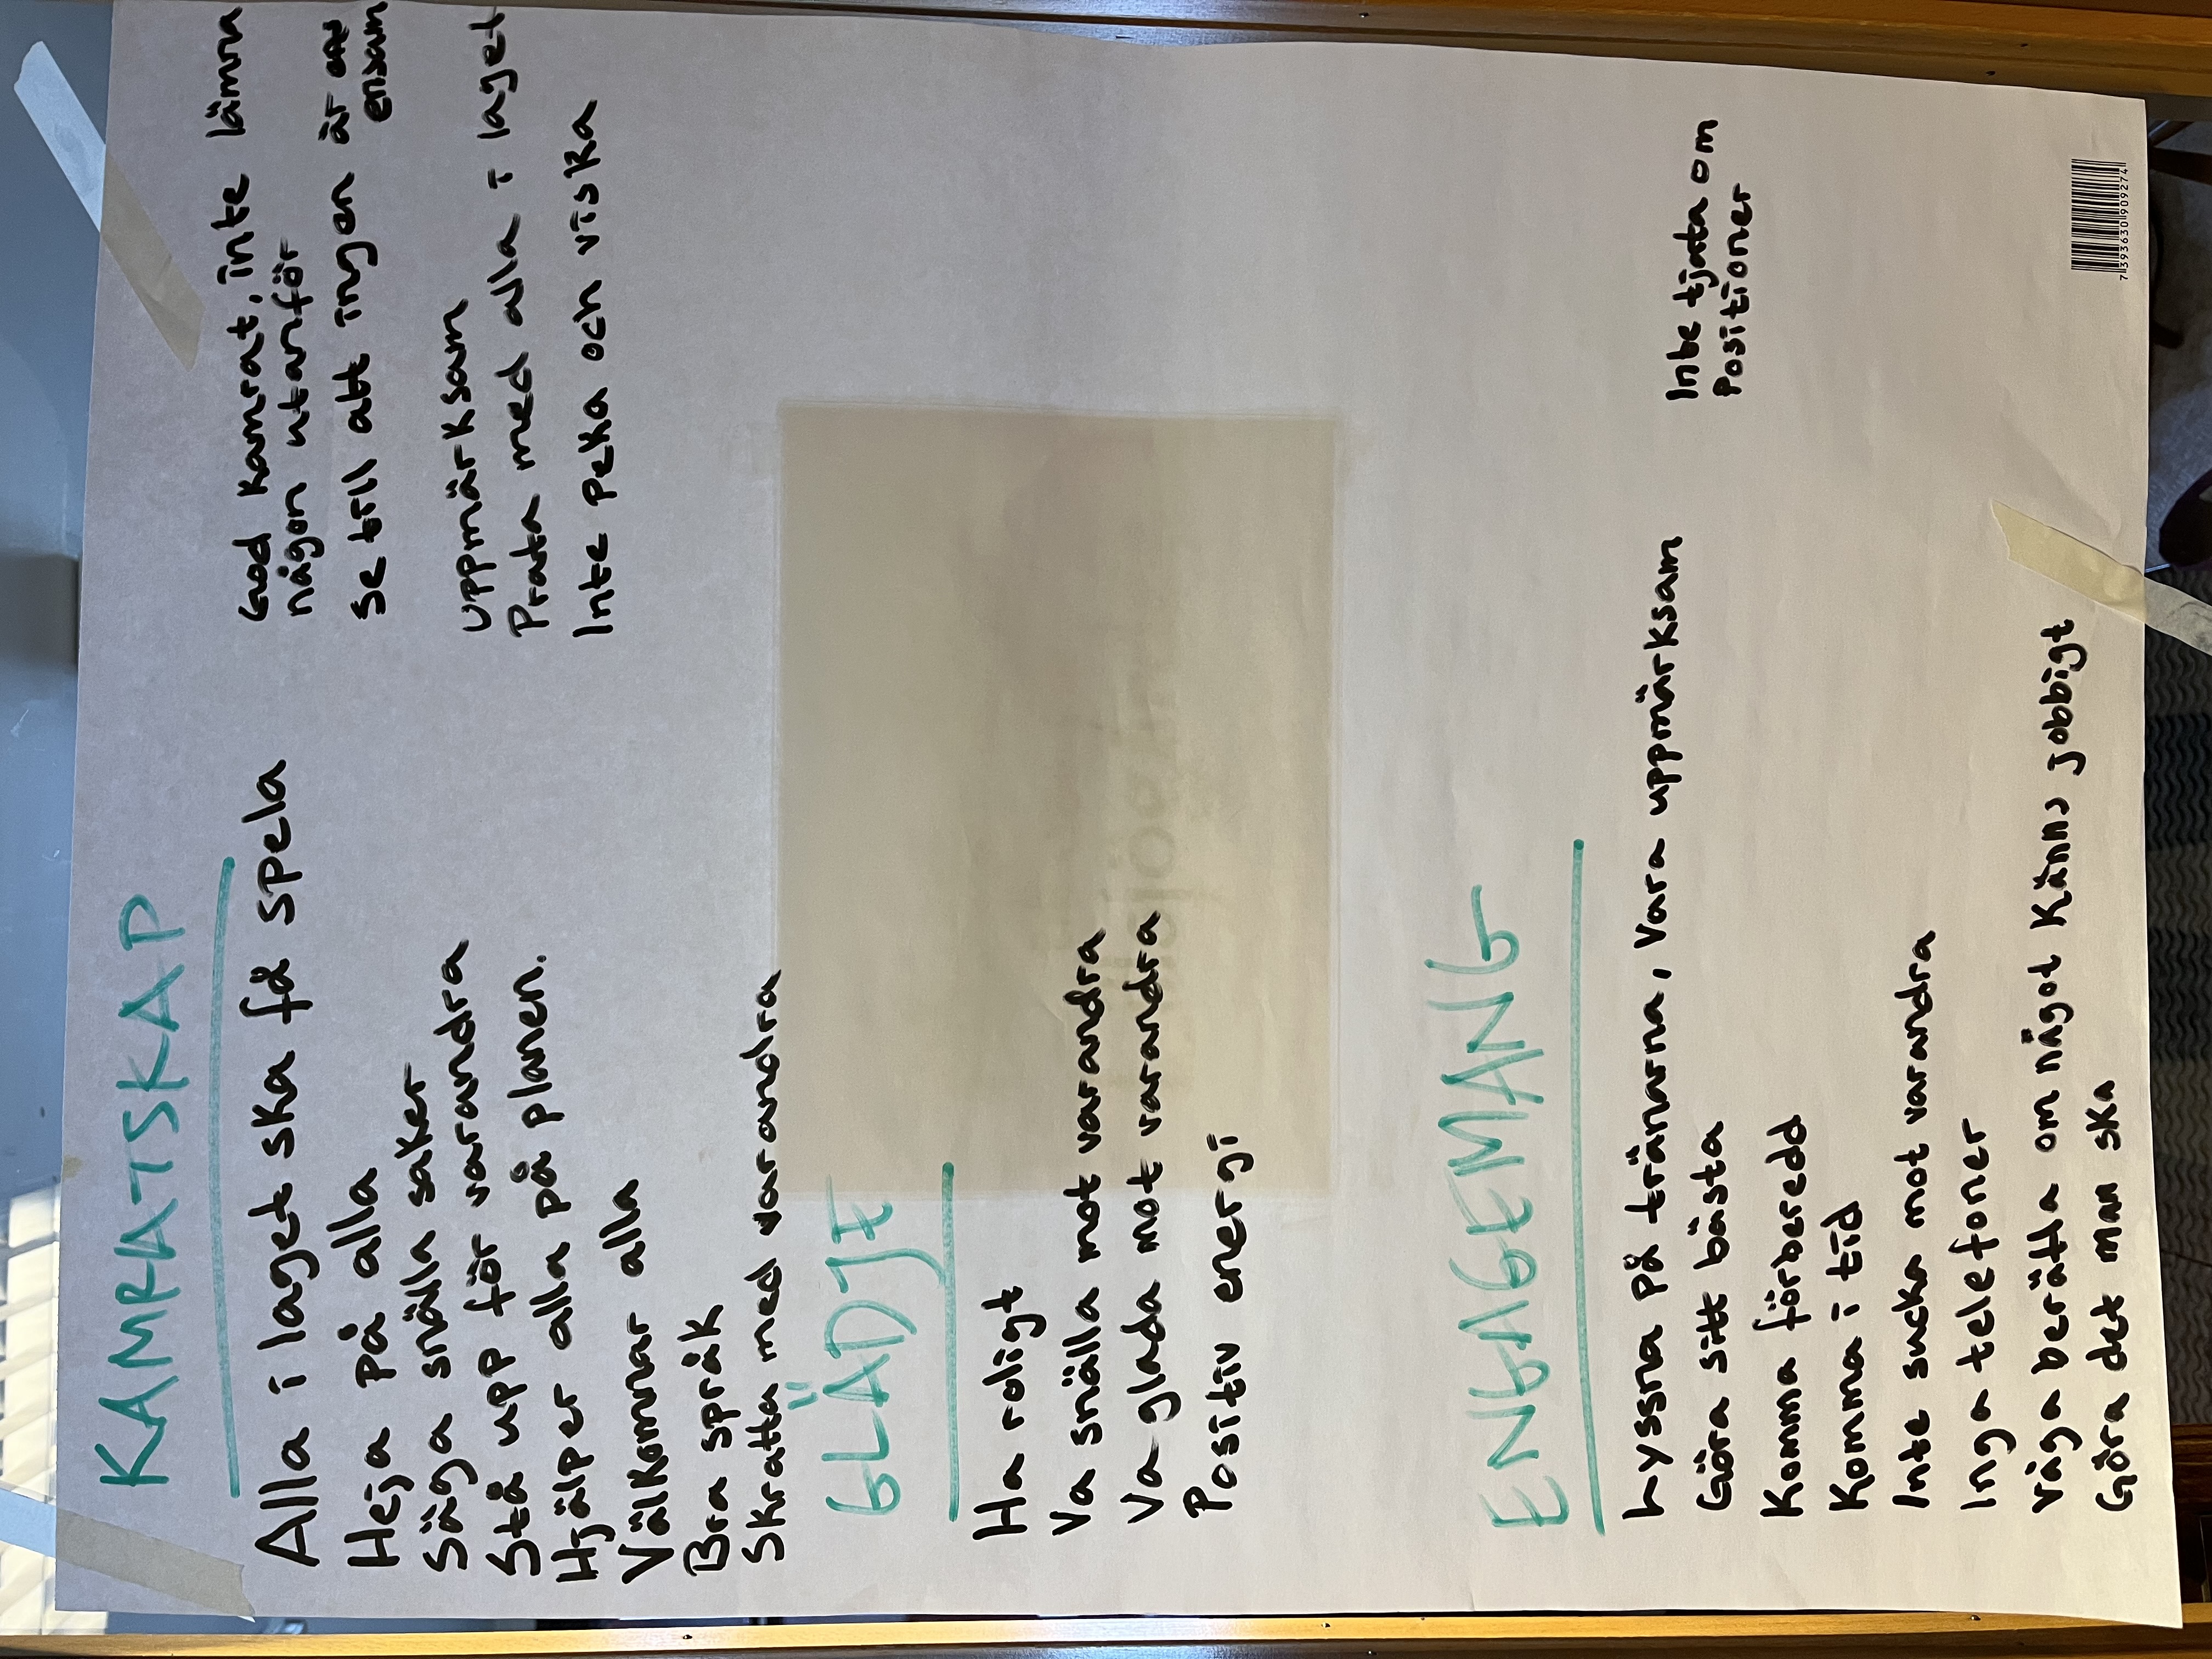 KAMRATSKAP
Alla i laget ska få spela
Heja på alla
Säga snälla saker
Stå upp för varandra
Hjälper alla på planen.
Välkomnar alla
Bra språk
Skratta med varandra
God kamrat, inte lämna
någon utanför
Se till att ingen är
ensam
uppmärksam
Prata med alla i laget
Inte peka och viska
GLÄDJE
Ha roligt
Va snälla mot varandra
Va glada mot varandra
Positiv energi
ENGAGEMANG
Lyssna på tränarna, Vara uppmärksam
Göra sitt bästa
Komma förberedd
Komma i tid
Inte sucka mot varandra
Inga telefoner
Våga berätta om något känns jobbigt
Göra det man ska
Inte tjata om
Positioner
7393630909274